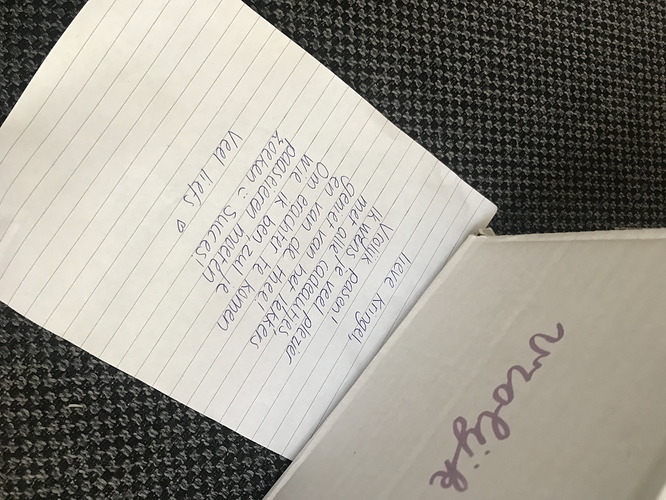 lieve Kringel,
Vrolijk pasen!
Ik wens je veel plezier
met alle cadeautjes,
geniet van het lekkers
en van de thee!
Om erachter te komen
wie ik ben zul je
paaseieren moeten
zoeken :) Succes!
Veel liefs ♡
vrolijk